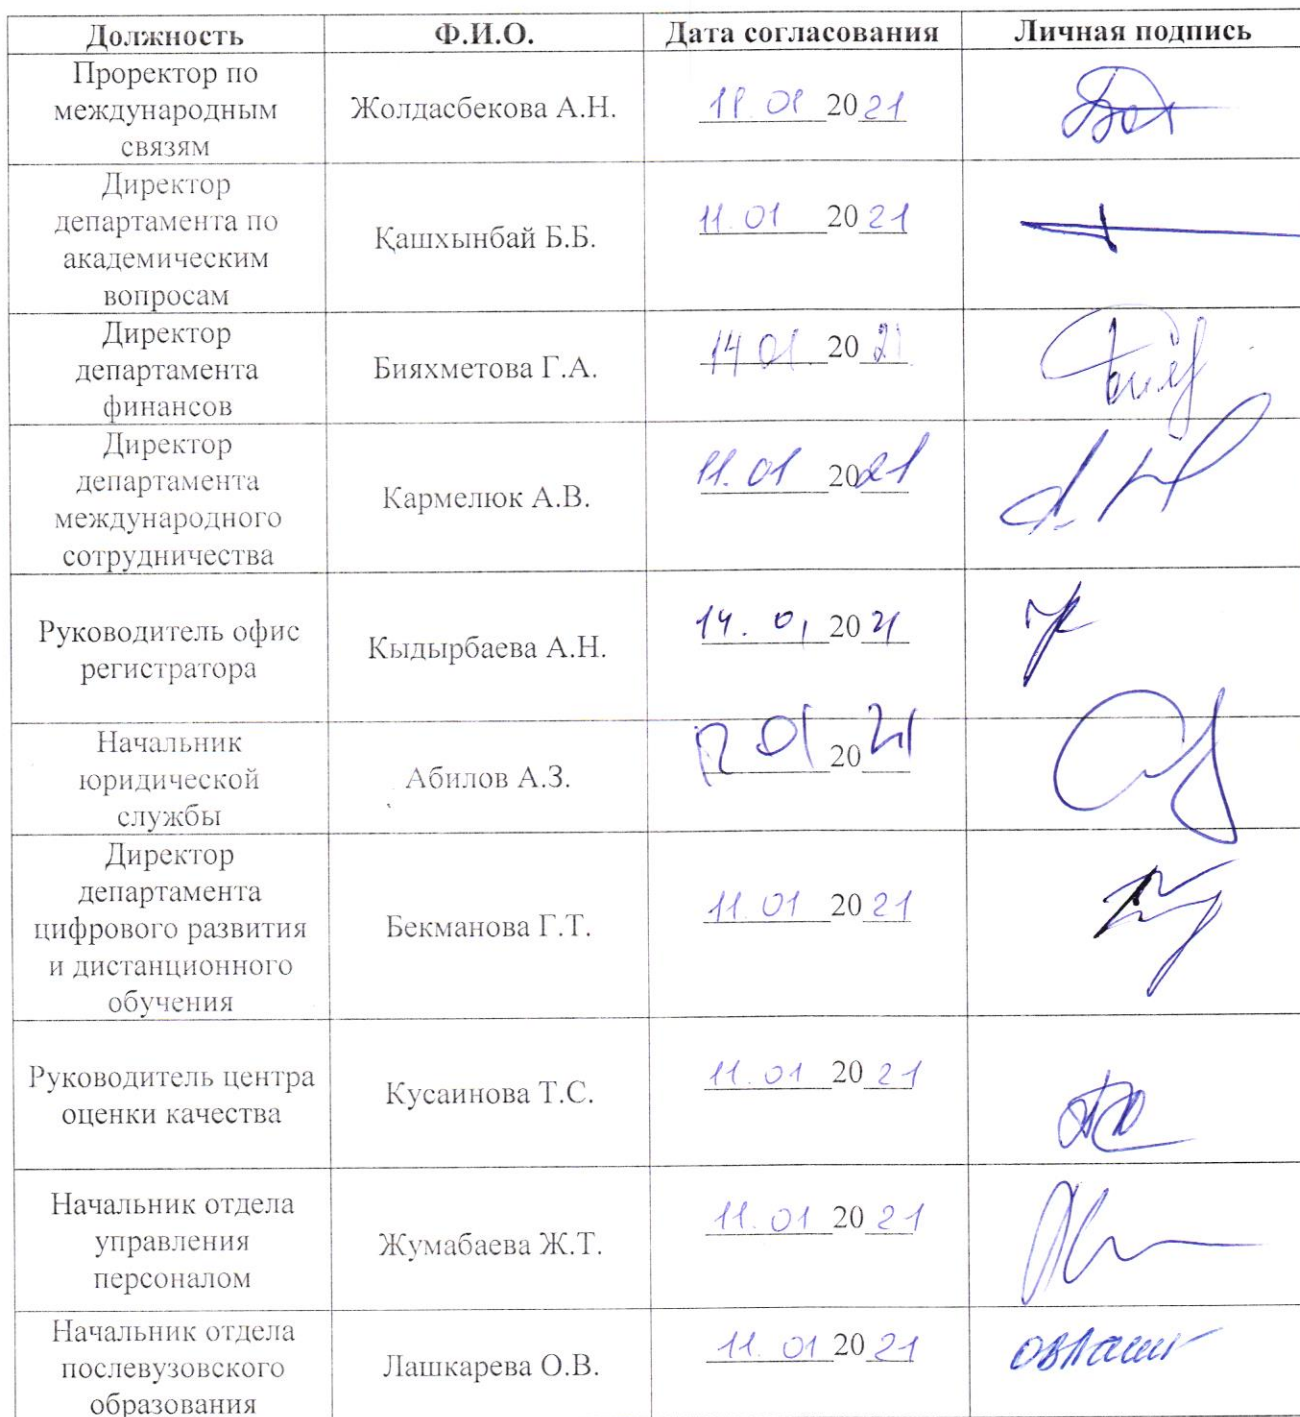 Должность Ф.И.О. Дата согласования Личная подпись
Проректор по
международным
связям
Жолдасбекова А.Н.
20 21
Директор
департамента по
академическим
вопросам
Қашхынбай Б.Б.
11.01 20 21
Директор
департамента
финансов
Бияхметова Г.А.
14 01. 20 21
Директор
департамента
международного
сотрудничества
Кармелюк А.В.
11.01 20 21
Руководитель офис
регистратора
Кыдырбаева А.Н.
14. 01 20 21
Начальник
юридической
службы
Абилов А.З.
01 20 21
Директор
департамента
цифрового развития
и дистанционного
обучения
Бекманова Г.Т.
11.01 20 21
Руководитель центра
оценки качества
Кусаинова Т.С.
11.01 20 21
Начальник отдела
управления
персоналом
Жумабаева Ж.Т.
11.01 20 21
Начальник отдела
послевузовского
образования
Лашкарева О.В.
11.01 20 21